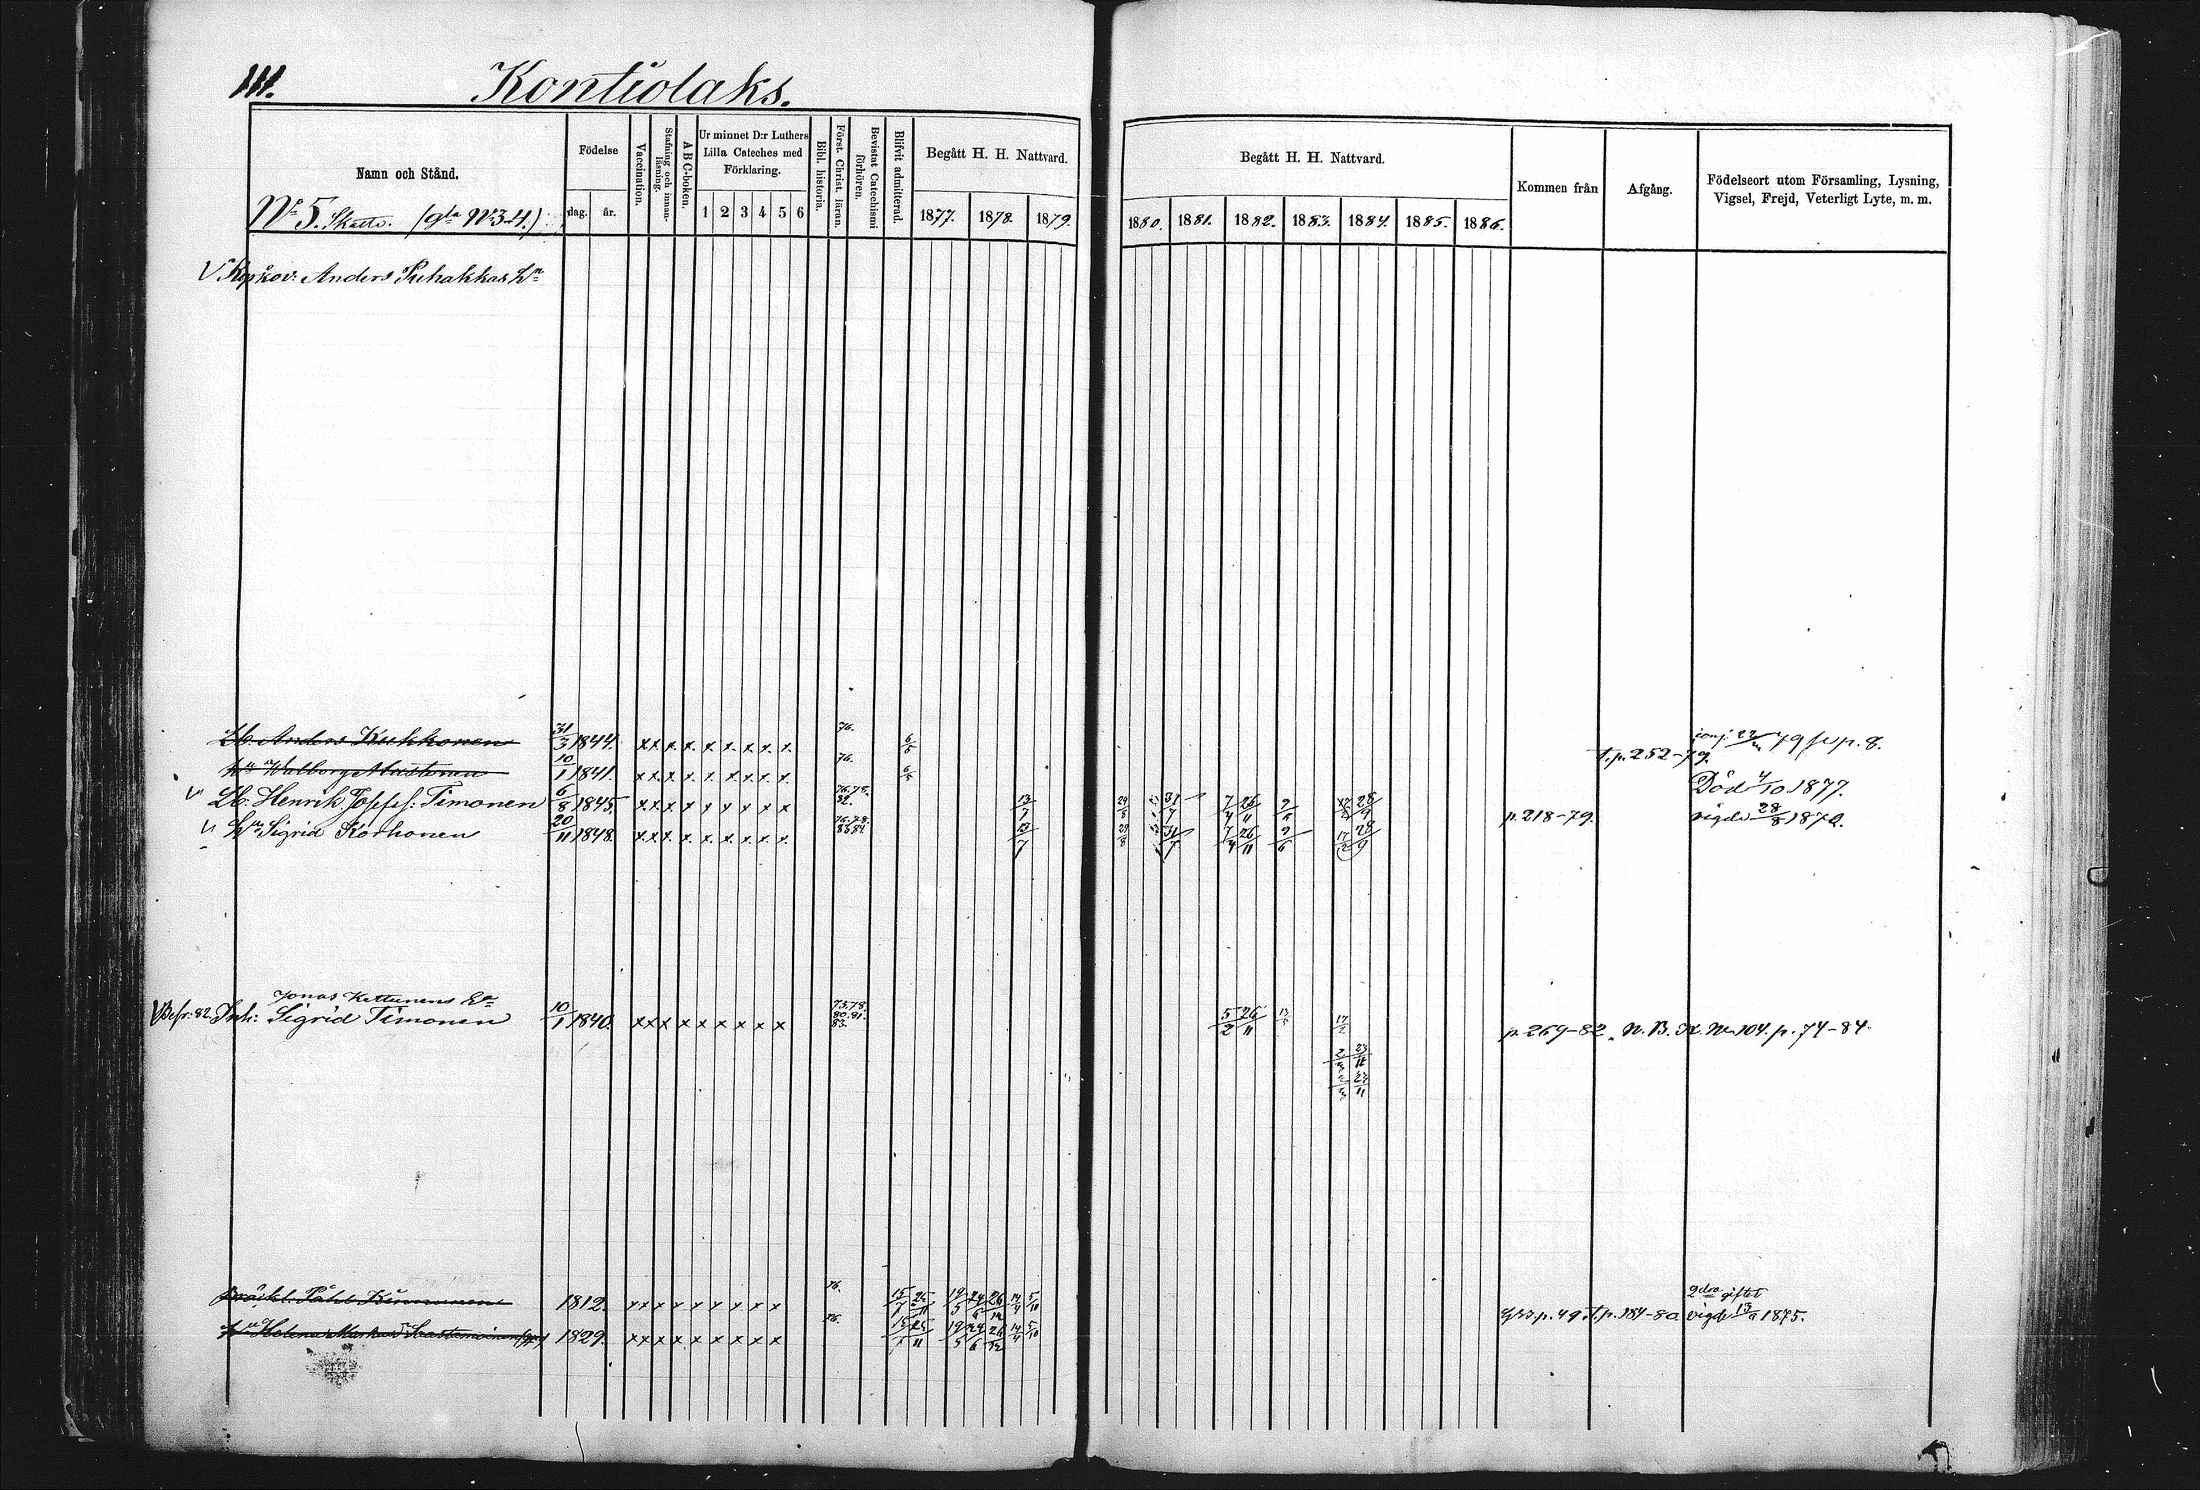 111.
Kontiolaks.
Namn och Stånd.
Födelse
dag.
år.
Vaccination.
Stafning och innanläsning.
ABC-boken.
Ur minnet D:r Luthers
Lilla Cateches med
Förklaring.
1 2 3 4 5 6
Bibl. historia.
Först. Christ. läran.
Bevistat Catechismi förhören.
Blifvit admitterad.
Begått H. H. Nattvard.
1877. 1878. 1879.
Begått H. H. Nattvard.
1880. 1881. 1882. 1883. 1884. 1885. 1886.
Kommen från
Afgång.
Födelseort utom Församling, Lysning,
Vigsel, Frejd, Veterligt Lyte, m. m.
No 5. Skatto. (gla No 34.)
Anders Puhakkas Hn
Lb. Anders Kukkonen 31/3 1844. x x x x x x x x x 76. 6/5 t. p. 252-79.
Hu Walborg Mustonen 10/1 1841. x x x x x x x x x 76. 6/5 Död 4/10 1877.
Lb. Henrik Josefs: Timonen 6/8 1845. x x x x x x x x x 76.78. 82. 13/7 29/8 31/7 7/4 26/11 28/9 p. 218-79. vigde 28/8 1872.
Hu Sigrid Korhonen 20/11 1848. x x x x x x x x x 13/7 29/8 31/7 7/4 26/11 9/6 17/2 28/9
Jonas Kettunens Ea
Befr: 82. Inh: Sigrid Timonen 10/1 1840. x x x x x x x x x 75.78. 80.81. 83. 5/2 26/11 17/2 p. 269-82. N. B. No 104. p. 74-84.
23/11
Påhl Kinnunen 1812. x x x x x x x x x 76. 15/7 25/11 19/5 24/6 26/12 14/4 5/10 p. 49. t. p. 184-80. 2dra giftet
vigde 1875.
Hu Helena Markus 1829. x x x x x x x x x 76. 15/7 25/11 19/5 24/6 26/12 14/4 5/10